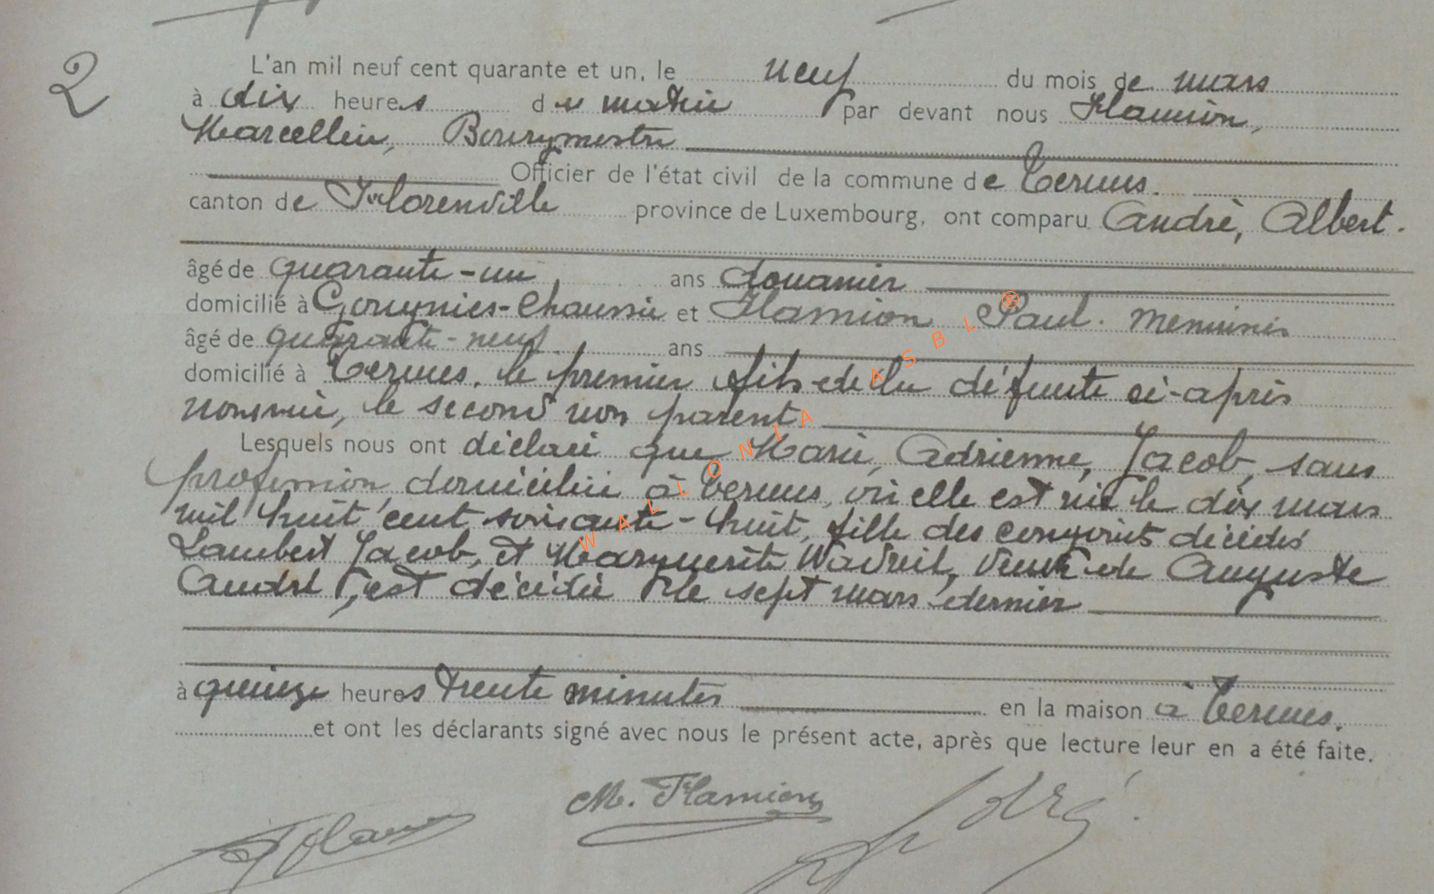 2
L'an mil neuf cent quarante et un, le neuf du mois de mars
à dix heures du matin par devant nous Flamion,
Marcellin, Bourgmestre
Officier de l'état civil de la commune de Termes.
canton de Florenville province de Luxembourg, ont comparu André, Albert.
âgé de quarante-un ans douanier
domicilié à Gougnies-Chaussée et Flamion Paul. menuisier
âgé de quarante-neuf ans
domicilié à Termes, le premier fils de la défunte ci-après
nommée, le second non parent
Lesquels nous ont déclaré que Marie, Adrienne, Jacob, sans
profession domiciliée à Termes, où elle est née le dix mars
mil huit cent soixante-huit, fille des conjoints décédés
Lambert Jacob, et Marguerite Wadreil, veuve de Auguste
André, est décédée le sept mars dernier
à quinze heures trente minutes en la maison à Termes.
et ont les déclarants signé avec nous le présent acte, après que lecture leur en a été faite.
M. Flamion
WALLONIA ASBL ®